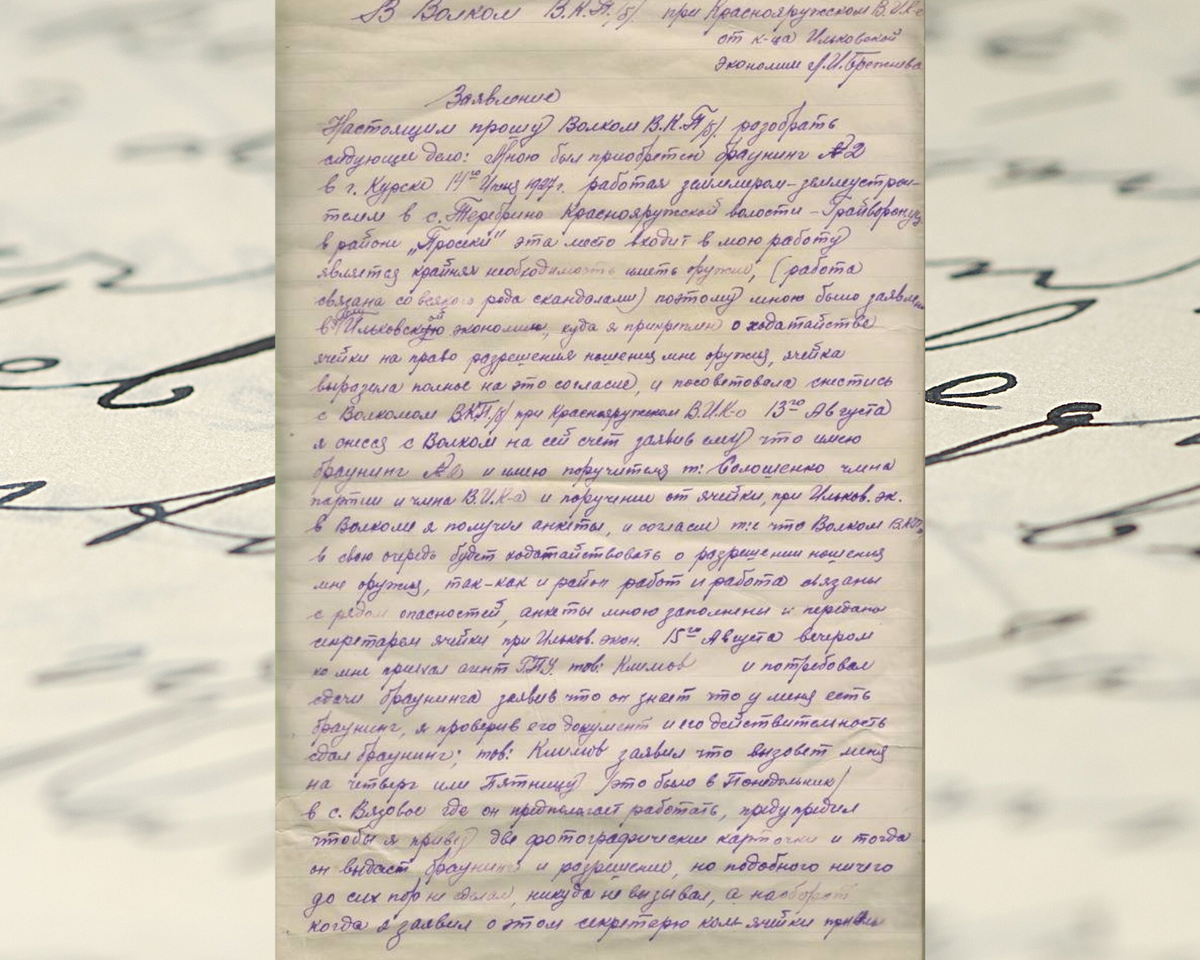 В Волком В.К.П./б/ при Краснояружском В.И.К-е
от к-ца Ильковской
экономии Л.И. Брежнева
Заявление
Настоящим прошу Волком В.К.П/б/ разобрать
следующее дело: Мною был приобретен браунинг №2
в г. Курске 14го Июня 1927г. работая землемером-землеустрои-
телем в с. Теребрино Краснояружской волости – Грайворонск
в районе „Просеки" эта место входит в мою работу
является крайняя необходимость иметь оружие, (работа
связана со всякого рода скандалами) поэтому мною было заявлено
в Ильковской экономии, куда я прикреплен о ходатайстве
ячейки на право разрешения ношения мне оружия, ячейка
выразила полное на это согласие, и посоветовала снестись
с Волкомом В.К.П./б/ при Краснояружском В.И.К-е 13го Августа
я снесся с Волком на сей счет заявив ему что имею
браунинг и имею поручителя т: Солошенко члена
партии и члена В.И.К-а и поручение от ячейки, при Ильков. эк.
в Волкоме я получил анкеты, и согласие т:е что Волком В.К.П.
в свою очередь будет ходатайствовать о разрешении ношения
мне оружия, так-как и район работ и работа связаны
с рядом опасностей, анкеты мною заполнены и переданы
секретарем ячейки при Ильков. экон. 15го Августа вечером
ко мне приехал агент Г.П.У. тов: Климов и потребовал
сдачи браунинга заявив что он знает что у меня есть
браунинг, я проверив его документ и его действительность
сдал браунинг; тов: Климов заявил что вызовет меня
на четверг или Пятницу /это было в Понедельник/
в с. Вязовое где он предполагает работать, предупредил
чтобы я привез две фотографические карточки и тогда
он выдаст браунинг и разрешение, но подобного ничего
до сих пор не сделал, никуда не вызывал, а наоборот
когда я заявил о этом секретарю ком-ячейки при